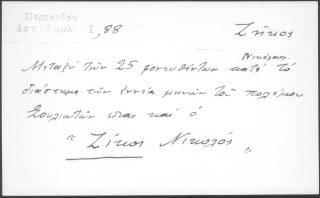 Περραιβου
Ιστ Σουλ Ι, 88
Ζήκος
Νικόλαος
Μεταξύ τῶν 25 φονευθέντων κατά τό
διάστημα τῶν ἐννέα μηνῶν τοῦ πολέμου
Σουλιωτῶν εἶναι καί ὁ
"Ζίκος Νικολός"